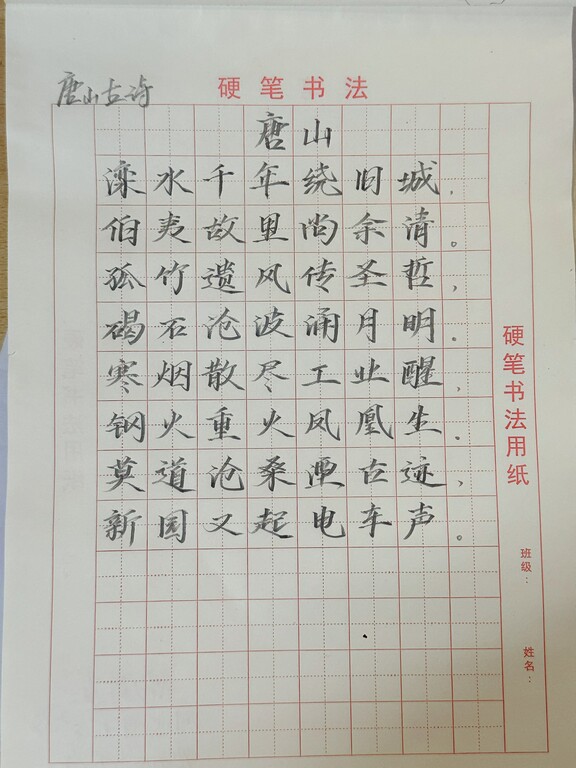 唐山古诗
硬笔书法
唐山
滦水千年绕旧城,
伯夷故里尚余清。
孤竹遗风传圣哲,
碣石沧波涌月明.
寒烟散尽工业醒,
钢火重火凤凰生.
莫道沧桑湮古迹,
新园又起电车声。
硬笔书法用纸
班级:
姓名: